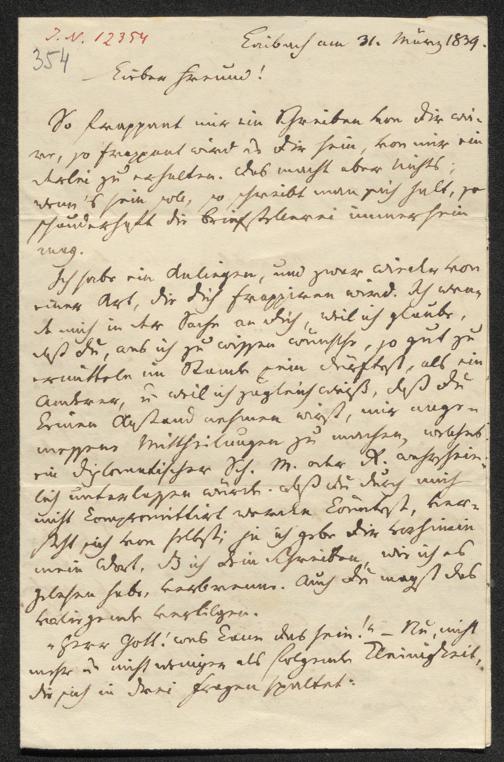 J. N. 12354
354
Laibach am 31. März 1839.
Lieber Freund!
So frappant mir ein Schreiben von Dir wä-
re, so frappant wird es Dir sein, von mir ein
derlei zu erhalten. Das macht aber nichts;
wenn's sein soll, so schreibt man sich halt, so
schauderhaft die Briefstellerei immerhin
mag.
Ich habe ein Anliegen, und zwar wieder von
einer Art, die Dich frappiren wird. Ich wen-
de mich in der Sache an Dich, weil ich glaube,
daß Du, was ich zu wissen wünsche, so gut zu
ermitteln im Stande sein dürftest, als ein
Anderer, u weil ich zugleich weiß, daß Du
keinen Anstand nehmen wirst, mir ange-
messene Mittheilungen zu machen, welches
ein diplomatischer Sch. M. oder R. wahrschein-
lich unterlassen würde. Daß Du durch mich
nicht kompromittirt werden könntest, ver-
steht sich von selbst; ja ich gebe Dir vorhinein
mein Wort, daß ich Dein Schreiben, wie ich es
gelesen habe, verbrenne. Auch Du magst das
vorliegende vertilgen.
"Herr Gott! was kann das sein!" – Nu, nicht
mehr u nicht weniger als folgende Kleinigkeit,
die sich in drei Fragen spaltet: